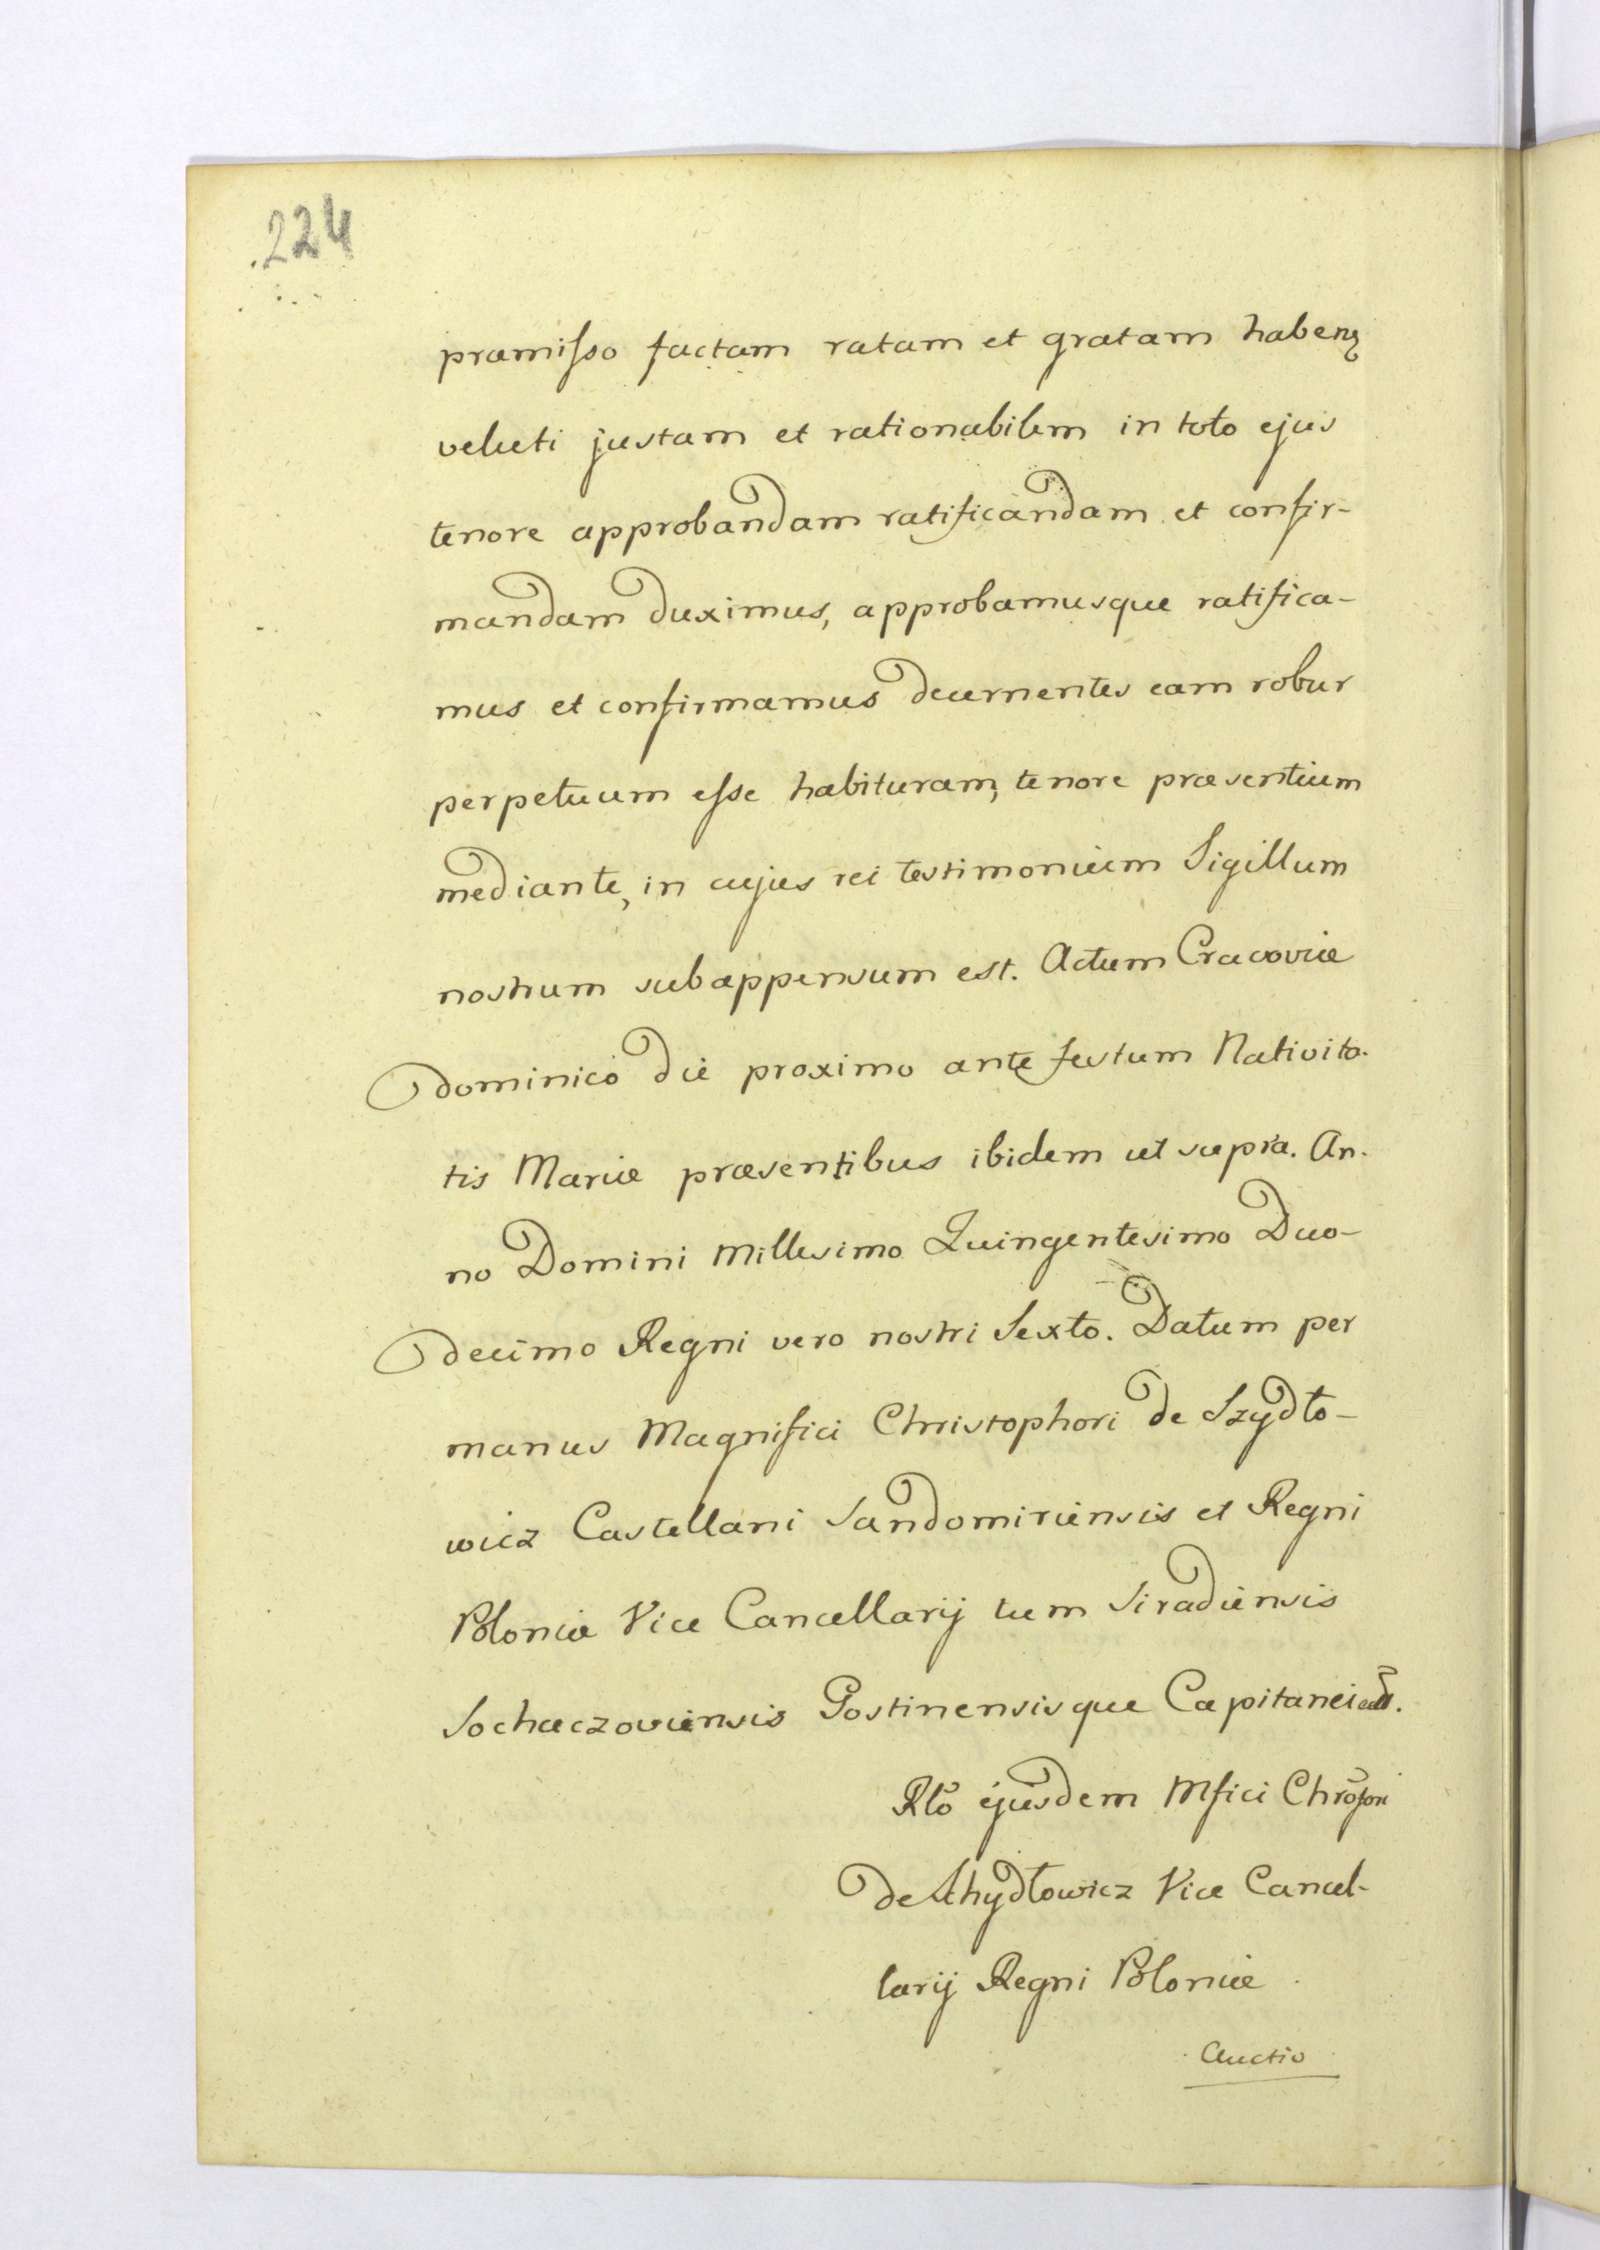 224
præmisso factam ratam et gratam haben
veluti justam et rationabilem in toto ejus
tenore approbandam ratificandam et confir-
mandam duximus, approbamusque ratifica-
mus et confirmamus decernentes eam robur
perpetuum esse habituram, tenore præsentium
mediante, in cujus rei testimonium Sigillum
nostrum subappensum est. Actum Cracoviæ
dominico die proximo ante festum Nativita-
tis Mariæ præsentibus ibidem ut supra. An-
no Domini Millesimo Quingentesimo Duo-
decimo Regni vero nostri Sexto. Datum per
manus Magnifici Christophori de Szydło-
wicz Castellani Sandomiriensis et Regni
Poloniæ Vice Cancellarij tum Siradiensis
Sochaczoviensis Gostinensisque Capitanei
Rlõ ejusdem Mfici
de Schydłowicz Vice Cancel-
larij Regni Poloniæ
Auctio